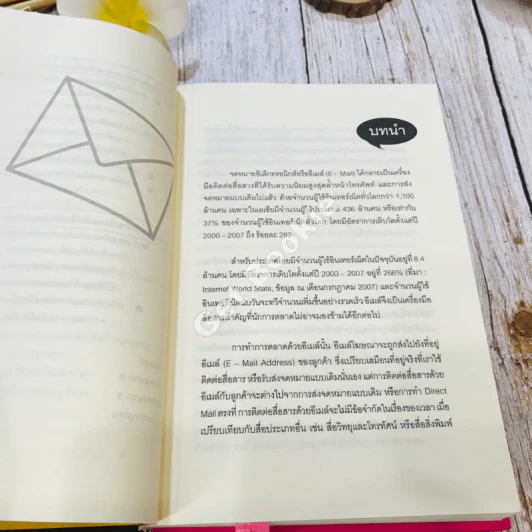 บทนำ
จดหมายอิเล็กทรอนิกส์หรืออีเมล์ (E – Mail) ได้กลายเป็นเครื่อง
มือติดต่อสื่อสารที่ได้รับความนิยมสูงสุดล้ำหน้าโทรศัพท์ และการส่ง
จดหมายแบบเดิมไปแล้ว ด้วยจำนวนผู้ใช้อินเทอร์เน็ตทั่วโลกกว่า 1,100
ล้านคน เฉพาะในเอเชียมีจำนวนผู้ใช้ประมาณ 436 ล้านคน หรือเท่ากับ
37% ของจำนวนผู้ใช้อินเทอร์เน็ตทั่วโลก โดยมีอัตราการเติบโตตั้งแต่ปี
2000 – 2007 ถึง ร้อยละ 282
สำหรับประเทศไทยมีจำนวนผู้ใช้อินเทอร์เน็ตในปัจจุบันอยู่ที่ 8.4
ล้านคน โดยมีอัตราการเติบโตตั้งแต่ปี 2000 – 2007 อยู่ที่ 266% (ที่มา :
Internet World Stats, ข้อมูล ณ เดือนกรกฎาคม 2007) และจำนวนผู้ใช้
อินเทอร์เน็ตนับวันจะทวีจำนวนเพิ่มขึ้นอย่างรวดเร็ว อีเมล์จึงเป็นเครื่องมือ
สื่อสารสำคัญที่นักการตลาดไม่อาจมองข้ามได้อีกต่อไป
การทำการตลาดด้วยอีเมล์นั้น อีเมล์โฆษณาจะถูกส่งไปยังที่อยู่
อีเมล์ (E – Mail Address) ของลูกค้า ซึ่งเปรียบเสมือนที่อยู่จริงที่เราใช้
ติดต่อสื่อสาร หรือรับส่งจดหมายแบบเดิมนั่นเอง แต่การติดต่อสื่อสารด้วย
อีเมล์กับลูกค้าจะต่างไปจากการส่งจดหมายแบบเดิม หรือการทำ Direct
Mail ตรงที่ การติดต่อสื่อสารด้วยอีเมล์จะไม่มีข้อจำกัดในเรื่องของเวลา เมื่อ
เปรียบเทียบกับสื่อประเภทอื่น เช่น สื่อวิทยุและโทรทัศน์ หรือสื่อสิ่งพิมพ์